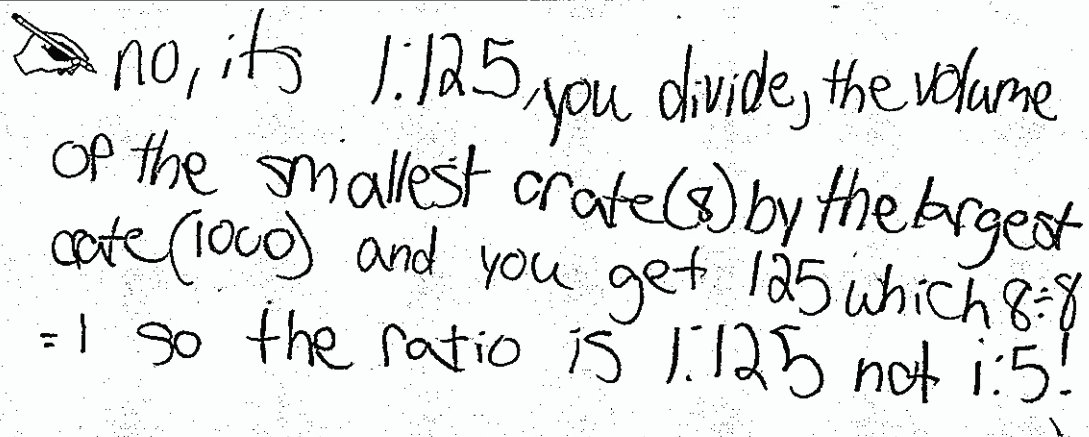 no, its 1:125, you divide, the volume
of the smallest crate(8) by the largest
crate (1000) and you get 125 which 8÷8
=1 so the ratio is 1:125 not 1:5!